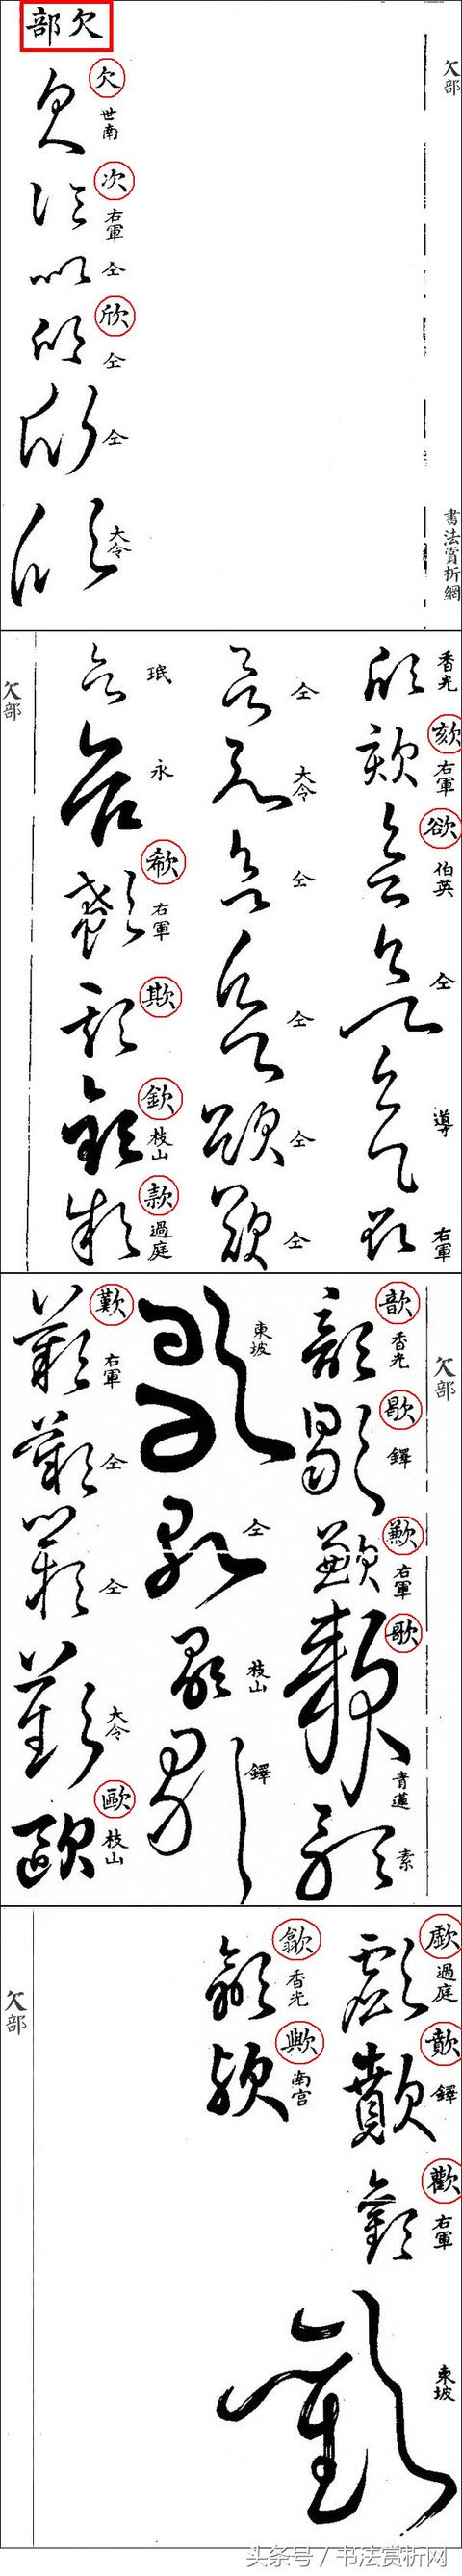 欠部
書法賞析網
欠部
欠 世南
次 右軍
仝
欣 仝
仝
大令
香光
欬 右軍
欲 伯英
仝
導
右軍
仝
大令
仝
仝
仝
仝
珉
永
欷 右軍
欺
欽 枝山
款 過庭
欠部
欠部
歆 香光
歇 鐸
歉 右軍
歌 青蓮
素
東坡
仝
枝山
鐸
歎 右軍
仝
仝
大令
歐 枝山
歔 過庭
歕 鐸
歡 右軍
東坡
歙 香光
歟 南宫
欠部
头条号 / 书法赏析网